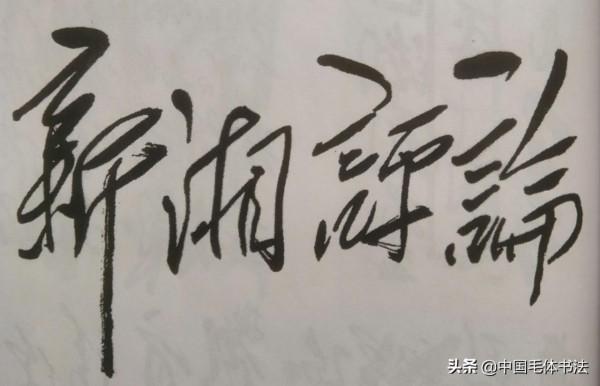 新湘評論
头条 @中国毛体书法